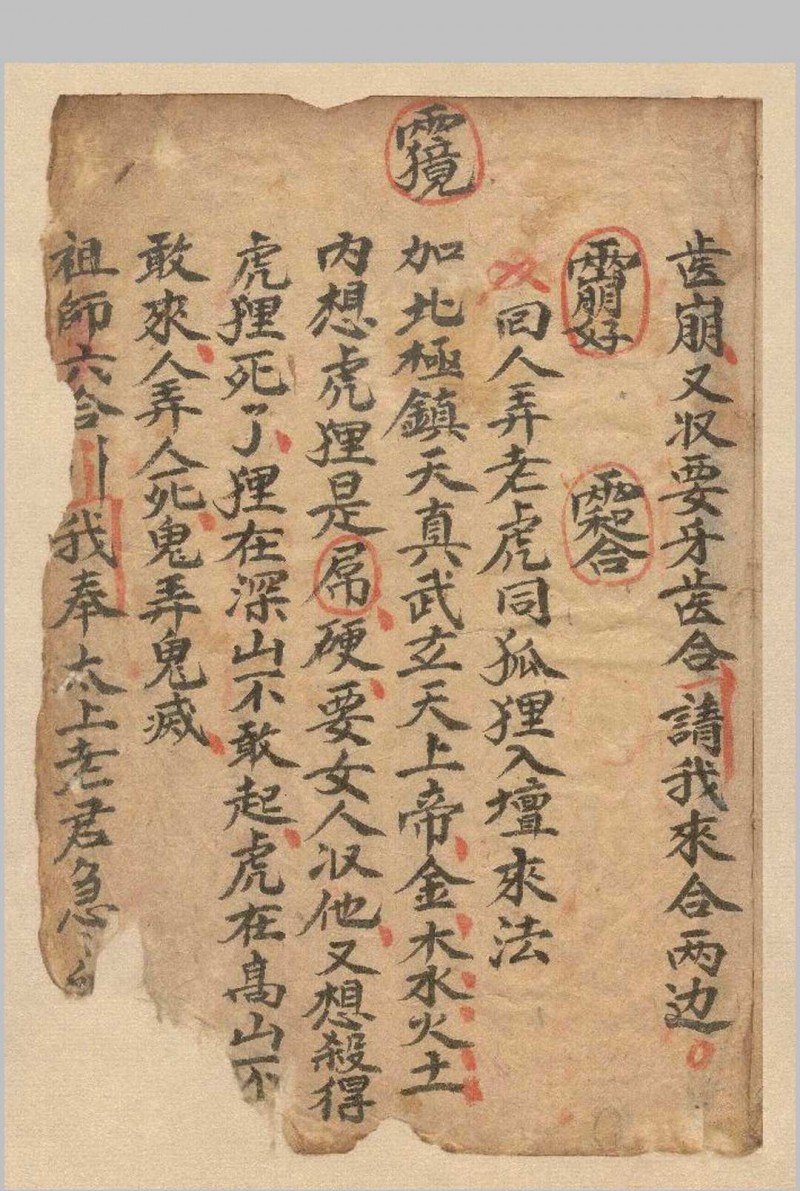 齿崩又収要牙齿合請我來合两边
回人弄老虎同狐狸入壇來法
加北極鎮天真武玄天上帝金木水火土
内想虎狸是屌硬要女人収他又想殺得
虎狸死了狸在深山不敢起虎在高山不
敢來人弄人死鬼弄鬼滅
祖師六合我奉太上老君急〻